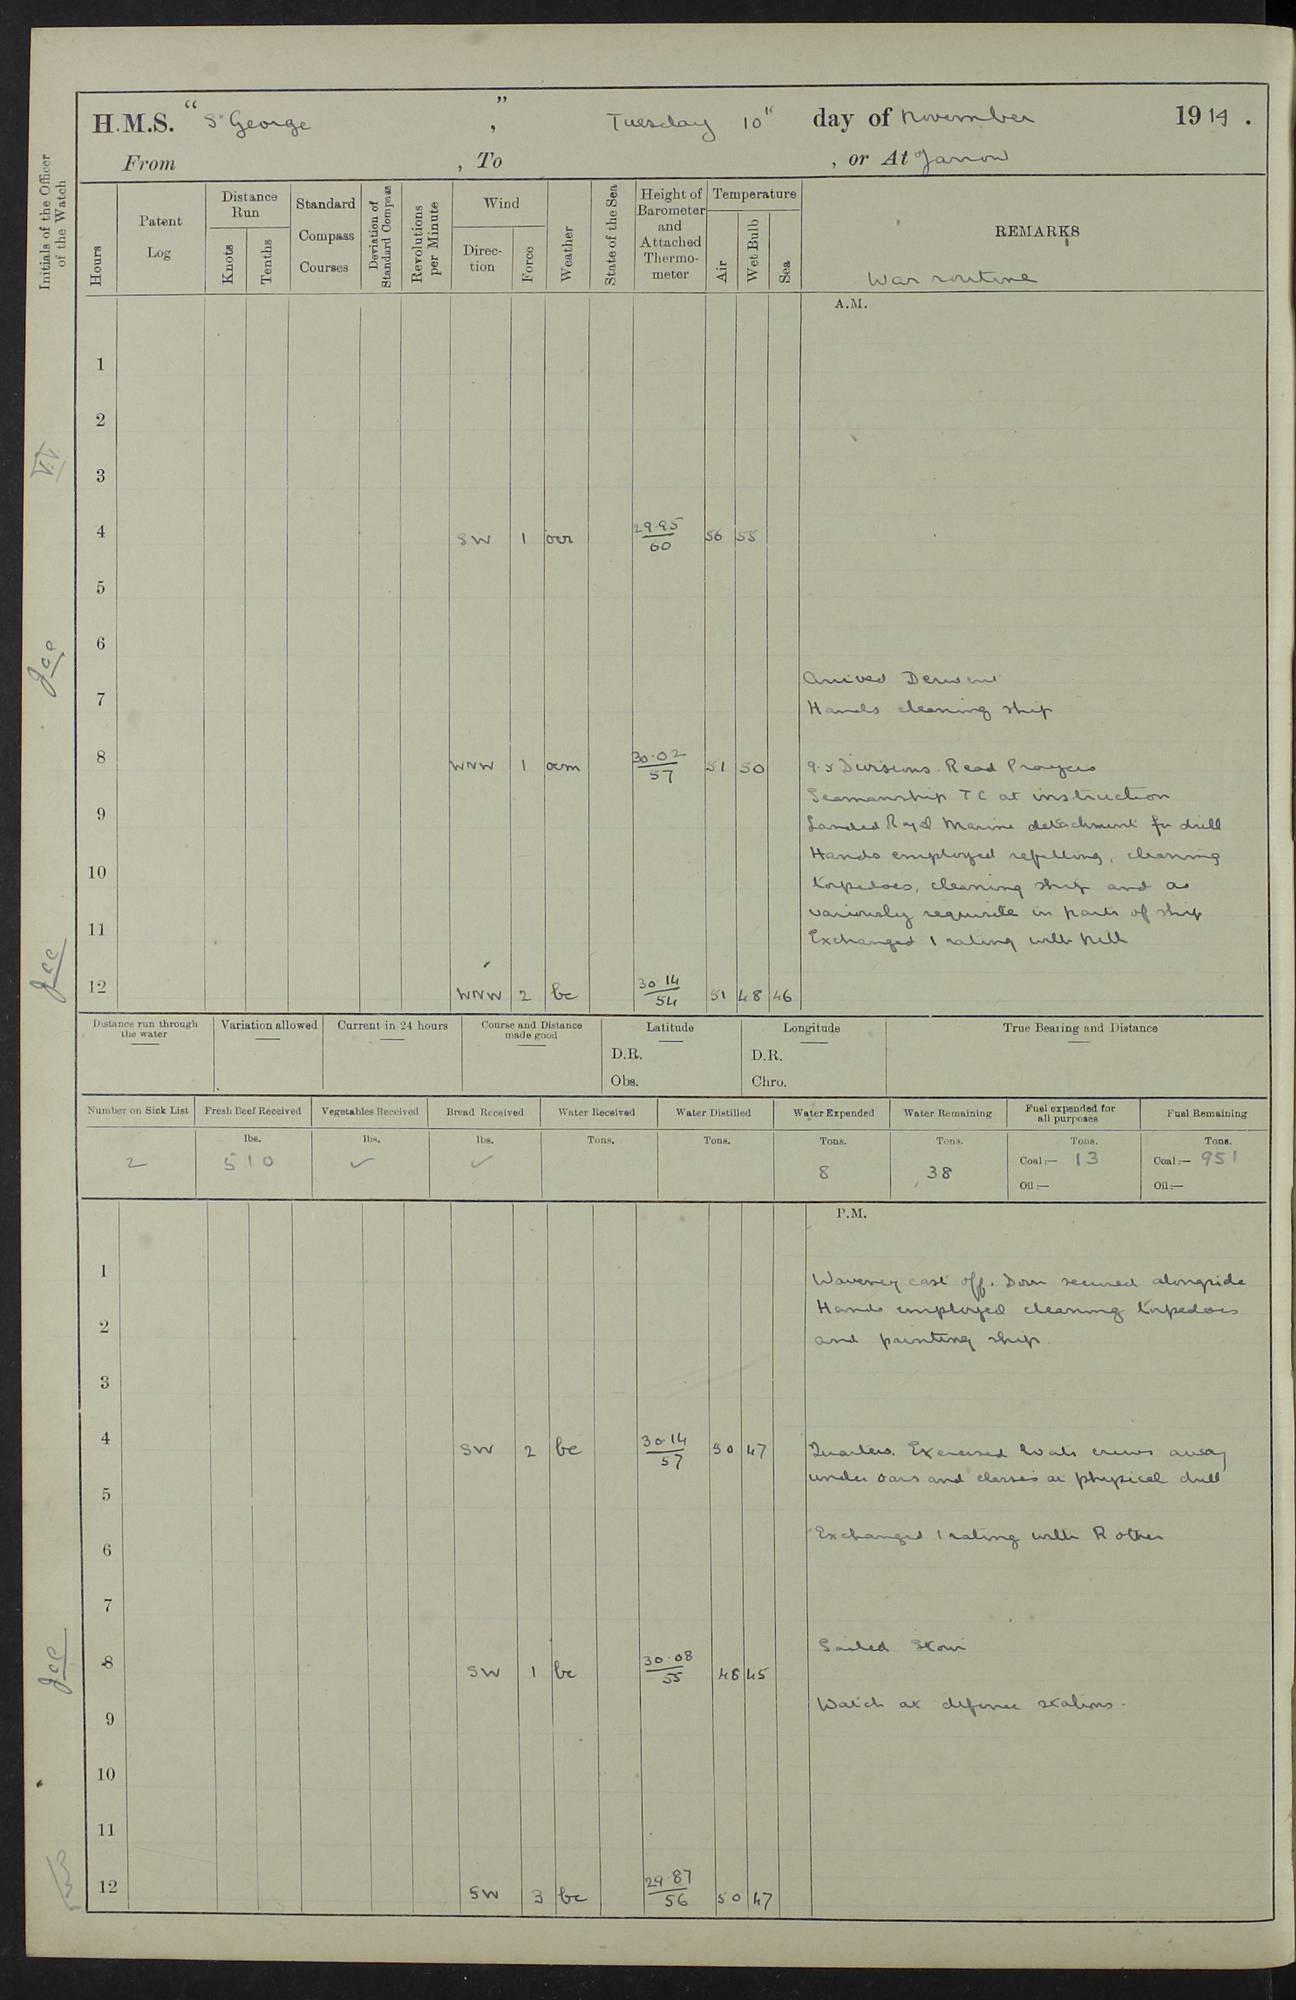 H.M.S. "St George", Tuesday 10th day of November 1914.
From , To , or At Jarrow
Initials of the Officer of the Watch
Hours
Patent Log
Distance Run
Knots
Tenths
Standard Compass Courses
Deviation of Standard Compass
Revolutions per Minute
Wind
Direction
Force
Weather
State of the Sea
Height of Barometer and Attached Thermometer
Temperature
Air
Wet Bulb
Sea
REMARKS
War routine
A.M.
1
2
3
4 SW 1 ocr 29.95/60 56 55
5
6
Arrived Derwent
7 Hands cleaning ship
8 WNW 1 ocm 30.02/57 51 50 9.5 Divisions. Read Prayers
Seamanship TC at instruction
9 Landed Royal Marine detachment for drill
Hands employed refitting, cleaning
10 torpedoes, cleaning ship and as
variously requisite in parts of ship
11 Exchanged 1 rating with Nith
12 WNW 2 bc 30.14/54 51 48 46
Distance run through the water
Variation allowed
Current in 24 hours
Course and Distance made good
Latitude
D.R.
Obs.
Longitude
D.R.
Chro.
True Bearing and Distance
Number on Sick List
Fresh Beef Received
Vegetables Received
Bread Received
Water Received
Water Distilled
Water Expended
Water Remaining
Fuel expended for all purposes
Fuel Remaining
lbs. lbs. lbs. Tons. Tons. Tons. Tons. Tons. Tons.
2 510 ✓ ✓ 8 38 Coal:— 13 Coal:— 951
Oil:— Oil:—
P.M.
1 Waveney cast off. Doon secured alongside
Hands employed cleaning torpedoes
2 and painting ship.
3
4 SW 2 bc 30.14/57 50 47 Quarters. Exercised boats crews away
under oars and classes at physical drill
5
Exchanged 1 rating with Rother
6
7
Sailed Stour
8 SW 1 bc 30.08/55 48 45
Watch at defence stations.
9
10
11
12 SW 3 bc 29.87/56 50 47